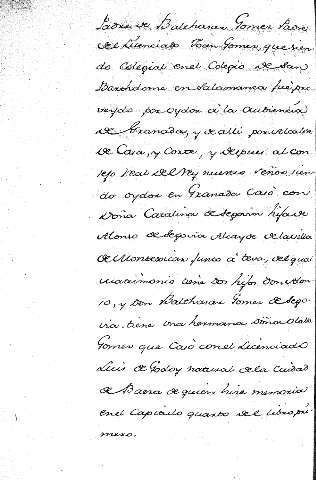 Padre de Balthasar Gomez Padre
del Licenciado Joan Gomez, que sien
do Colegial en el Colegio de San
Bartholome en Salamanca fué pro
veydo por oydor à la Audiencia
de Granada, y de alli por Alcalde
de Casa, y Corte, y despues al con
sejo Real del Rey nuestro Señor, sien
do oydor en Granada Casó con
Doña Catalina de Segovia hija de
Alonso de Segovia Alcayde de la villa
de Montexicar junto à teva, del qual
matrimonio tiene dos hijos Don Alon
so, y Don Balthasar Gomez de Sego
via. tiene una hermana Doña
Gomez que Casò con el Licenciado
Luis de Godoy natural de la Ciudad
de Baeza de quien hize memoria
en el Capitulo quarto del libro pri
mero.